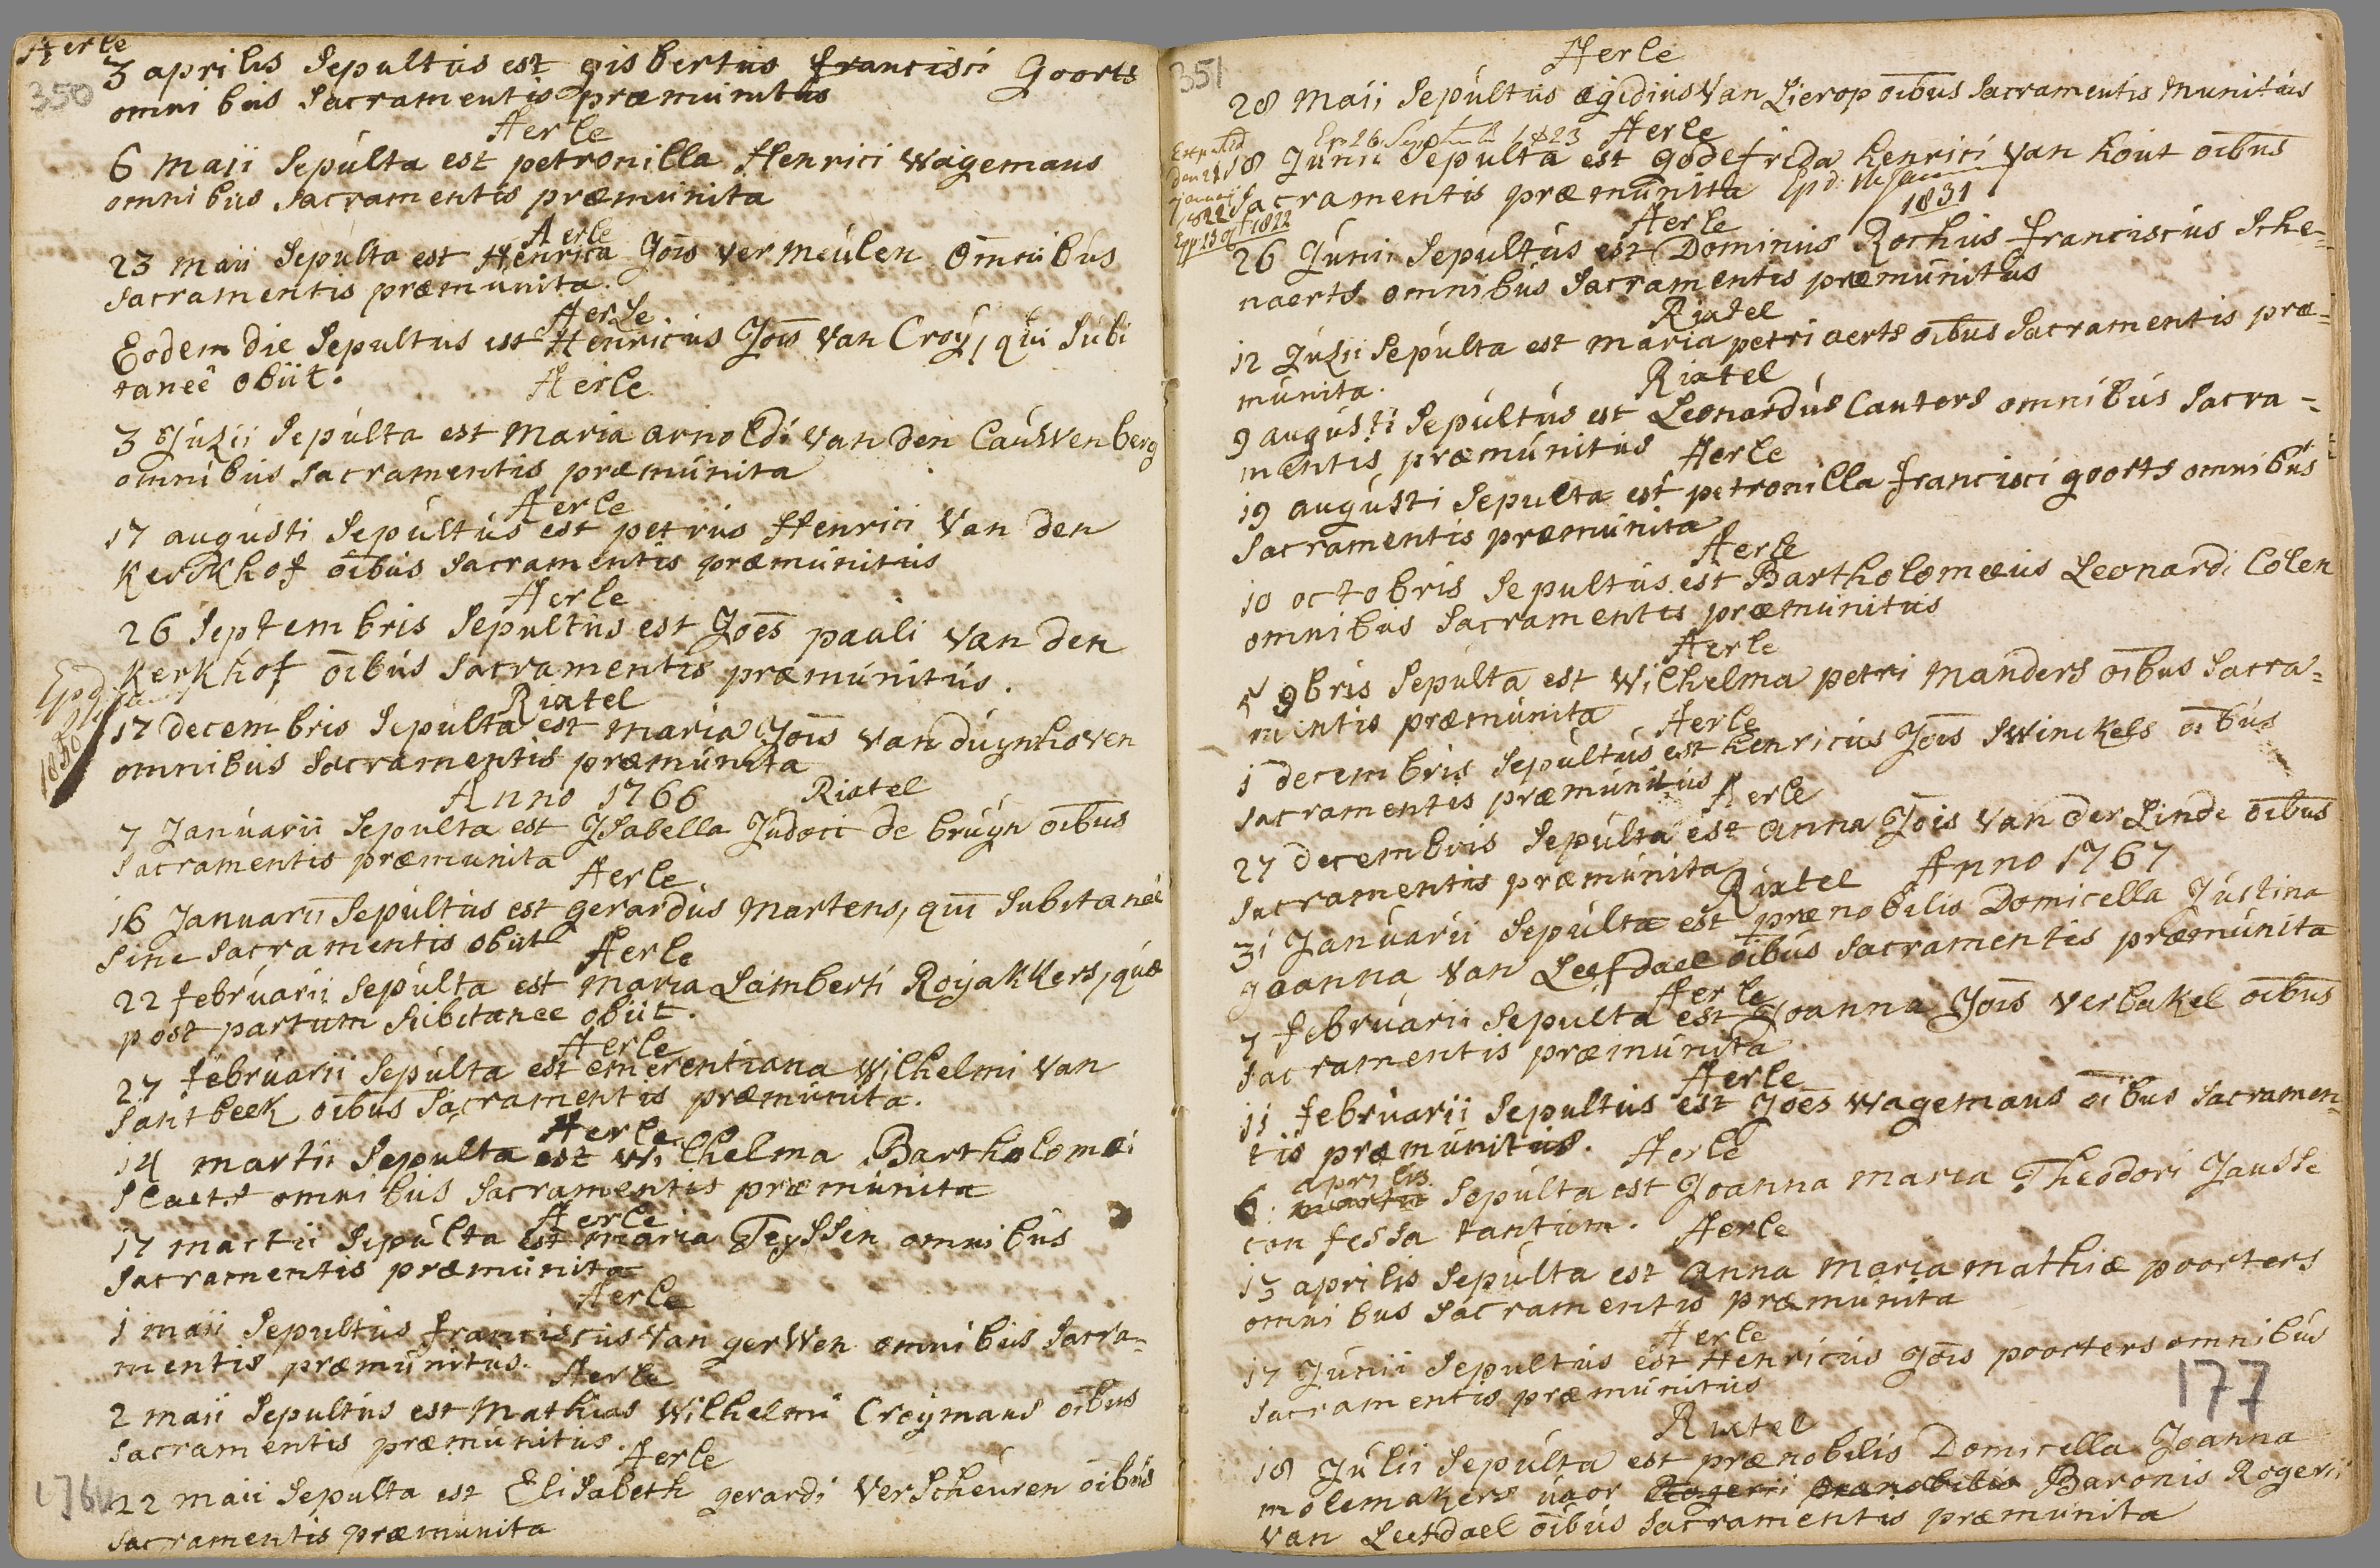 Aerle
350
3 aprilis Sepultus est gisbertus francisci Goorts
omnibus Sacramentis præmunitus
Aerle
6 maii Sepulta est petronilla Henrici Wagemans
omnibus Sacramentis præmunita
Aerle
23 maii Sepulta est Henrica Jois vermeulen omnibus
Sacramentis præmunita.
Aerle
Eodem die Sepultus est Henricus Jois van Croy, qui Subi
taneè obiit.
Aerle
3 Julii Sepulta est Maria arnoldi van den Cauwenberg
omnibus Sacramentis præmunita
Aerle
17 augusti Sepultus est petrus Henrici van den
kerkhof oibus Sacramentis præmunitus
Aerle
26 Septembris Sepultus est Joes pauli van den
kerkhof oibus Sacramentis præmunitus.
1830
Rixtel
17 decembris Sepulta est maria Jois van duynhoven
omnibus Sacramentis præmunita
Anno 1766 Rixtel
7 Januarii Sepulta est Isabella Judoci de bruyn oibus
Sacramentis præmunita
Aerle
16 Januarii Sepultus est gerardus Martens, qui Subitaneè
Sine Sacramentis obiit
Aerle
22 februarii Sepulta est maria Lamberti Royakkers, quæ
post partum Subitanee obiit.
Aerle
27 februarii Sepulta est emerentiana Wilhelmi van
Santbeek oibus Sacramentis præmunita.
Aerle
14 martii Sepulta est wilhelma Bartholomæi
Slaets omnibus Sacramentis præmunita
Aerle
17 martii Sepulta est maria Teyssen omnibus
Sacramentis præmunita
Aerle
1 maii Sepultus franciscus van gerwen omnibus Sacra=
mentis præmunitus.
Aerle
2 maii Sepultus est Mathias Wilhelmi Croymans oibus
Sacramentis præmunitus.
Aerle
22 maii Sepulta est Elisabeth gerardi Verscheuren oibus
Sacramentis præmunita
351
Aerle
28 Maii Sepultus ægidius van Lierop oibus Sacramentis Munitus
Aerle
18 Junii Sepulta est godefrida henrici van hout oibus
Sacramentis præmunita
1831
1822
Aerle
26 Junii Sepultus est Dominus Rochus franciscus Sche=
naerts omnibus Sacramentis præmunitus
Rixtel
12 Julii Sepulta est maria petri aerts oibus Sacramentis præ=
munita.
Rixtel
9 augusti Sepultus est Leonardus Cauters omnibus Sacra=
mentis præmunitus
Aerle
19 augusti Sepulta est petronilla francisci goorts omnibus
Sacramentis præmunita
Aerle
10 octobris Sepultus est Bartholomeus Leonardi Colen
omnibus Sacramentis præmunitus
Aerle
5 9bris Sepulta est Wilhelma petri Manders oibus Sacra=
mentis præmunita
Aerle
1 decembris Sepultus est henricus Jois Swinckels oibus
Sacramentis præmunitus
Aerle
27 decembris Sepulta est anna Jois van der Linde oibus
Sacramentis præmunita
Rixtel Anno 1767
31 Januarii Sepulta est prænobilis Domicella Justina
goanna van Leefdael oibus Sacramentis præmunita
Aerle
7 februarii Sepulta est Joanna Jois verbakel oibus
Sacramentis præmunita
Aerle
11 februarii Sepultus est Joes wagemans oibus Sacramen=
tis præmunitus.
Aerle
aprilis
6: martii Sepulta est Joanna maria Theodori Jansse
confessa tantum.
Aerle
13 aprilis Sepulta est anna maria mathiæ poorters
omnibus Sacramentis præmunita
Aerle
17 Junii Sepultus est Henricus Jois poorters omnibus
Sacramentis præmunitus
177
Rixtel
18 Julii Sepulta est prænobilis Domicella Joanna
molemakers uxor Rogerii prænobilis Baronis Rogerii
van Leefdael oibus Sacramentis præmunita